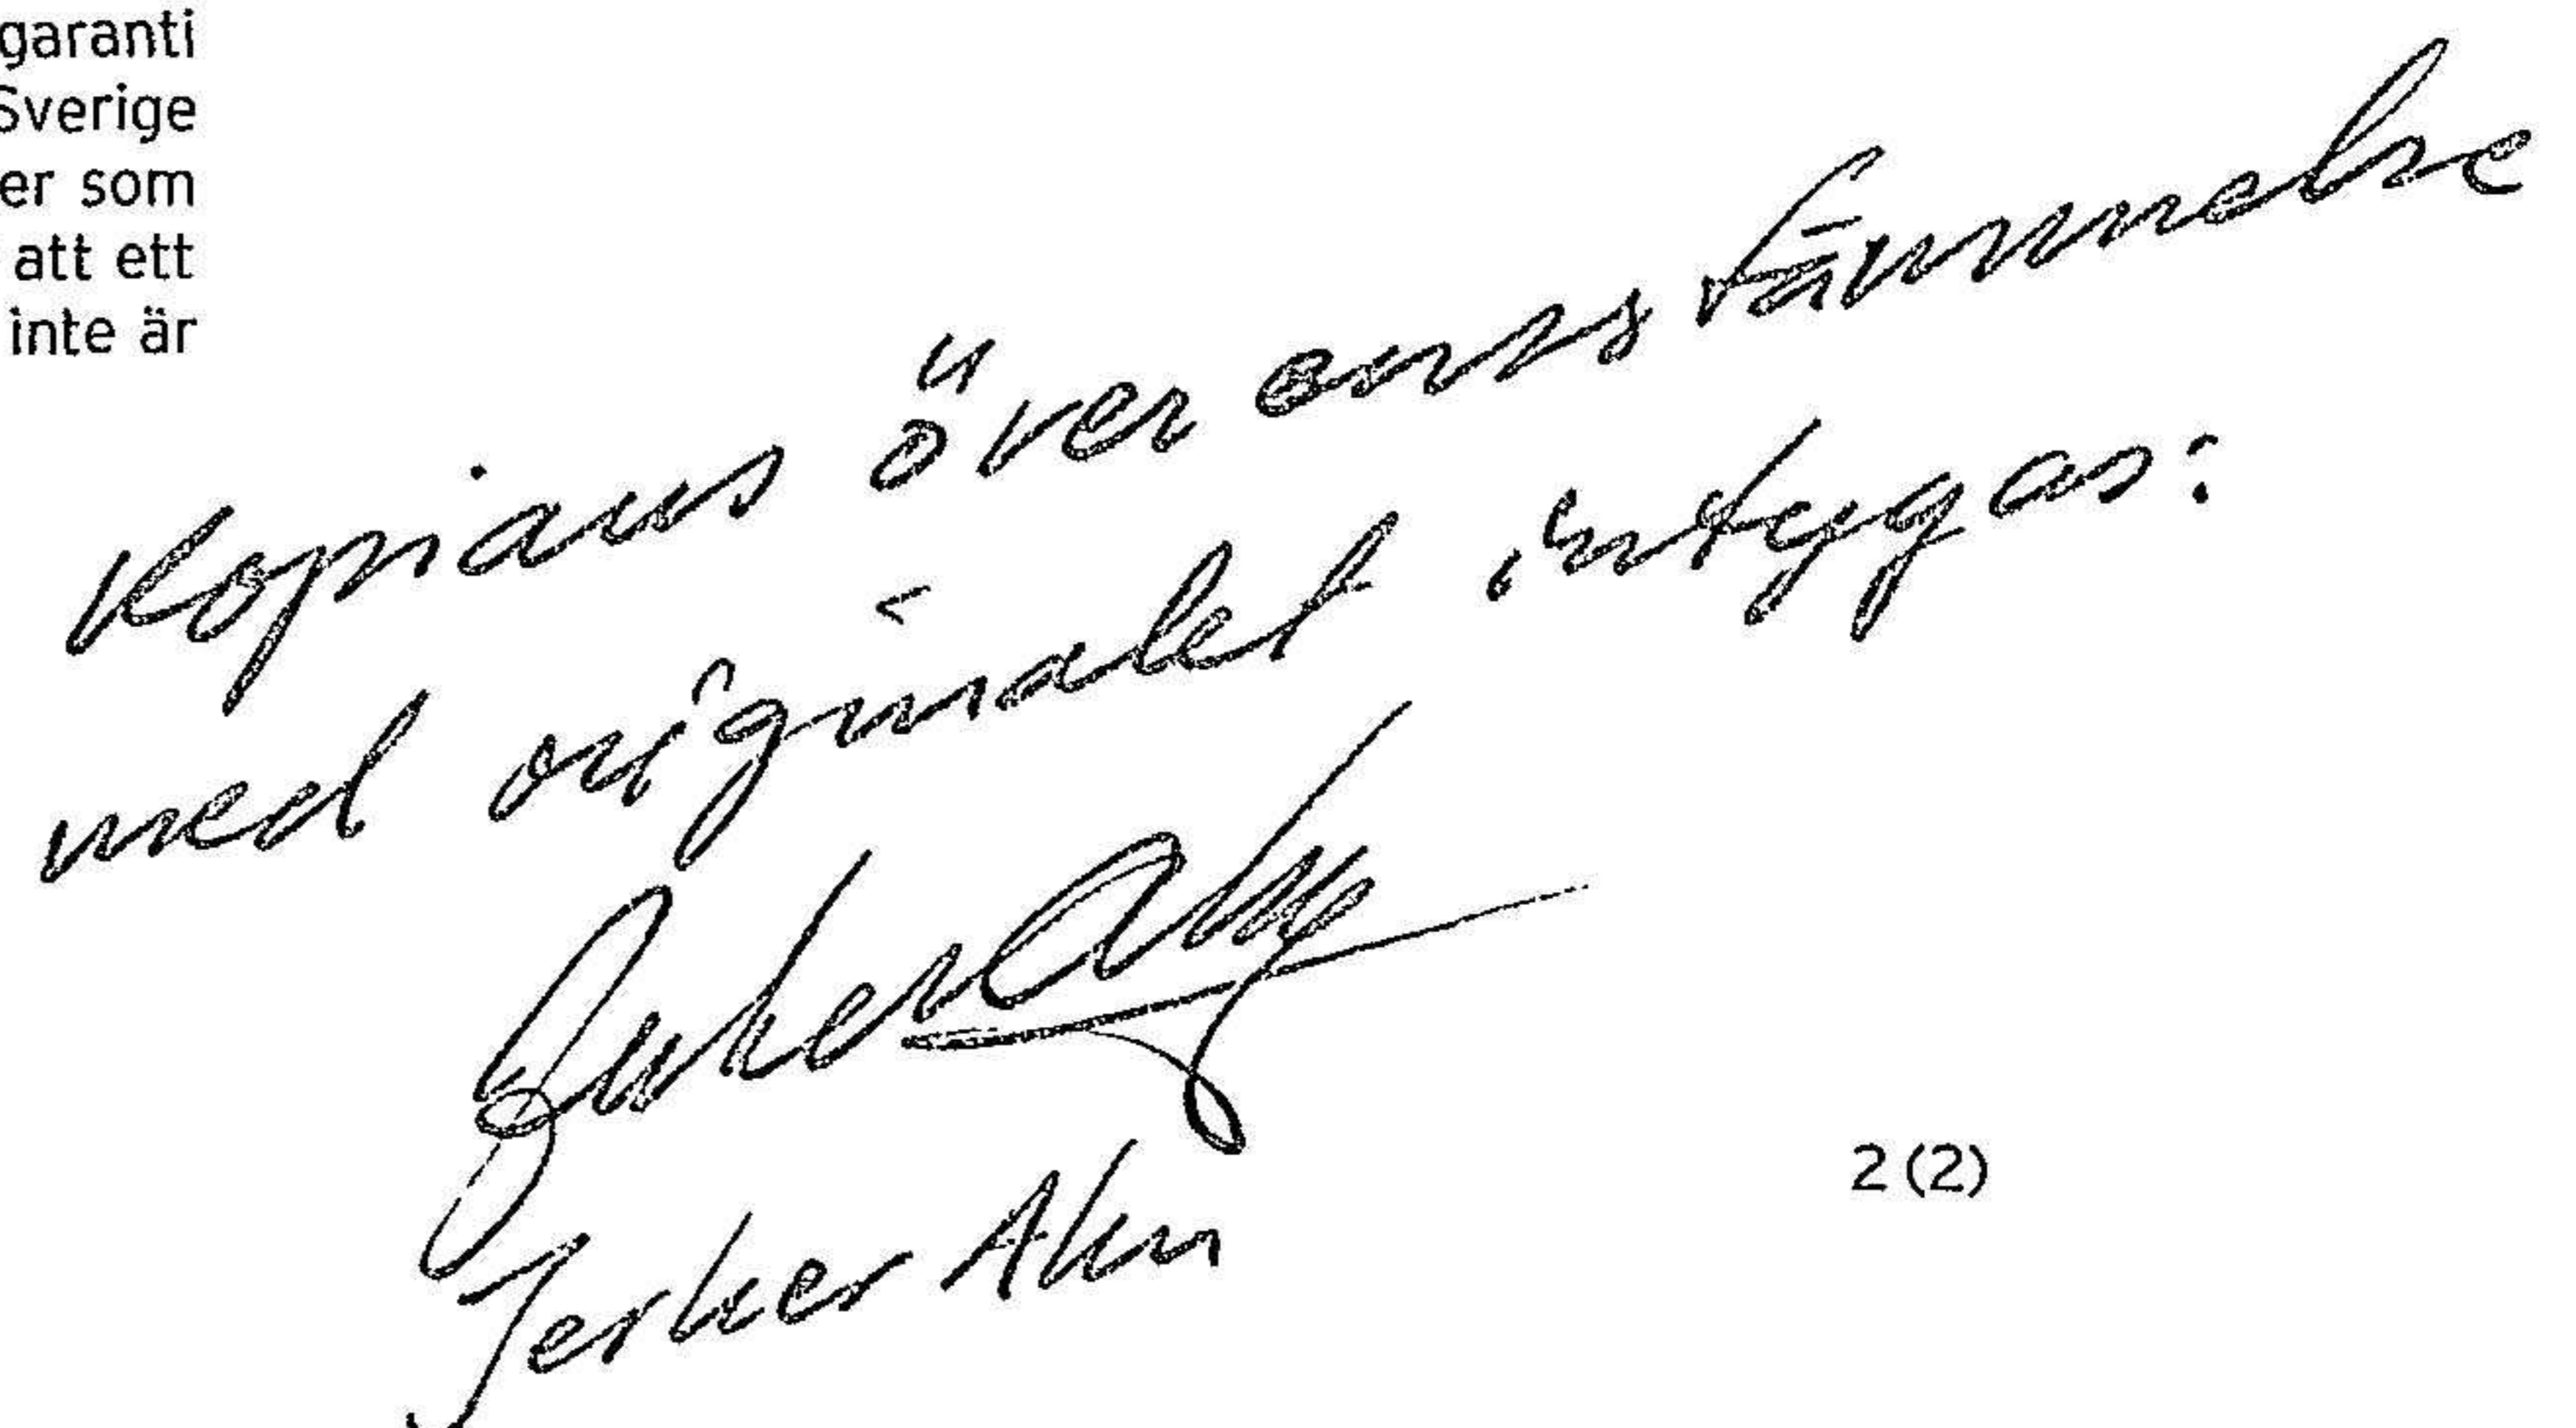 garanti
Sverige
er som
att ett
inte är
Kopians överensstämmelse
med originalet intygas:
Jerker
2(2)
Jerker